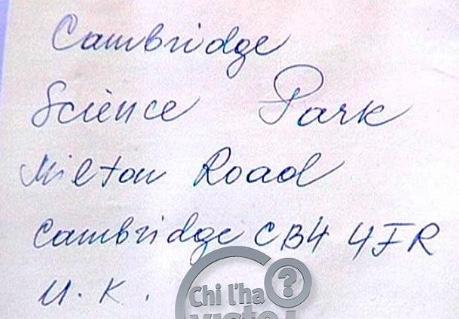 Cambridge
Science Park
Milton Road
Cambridge CB4 4FR
U. K.
Chi l'ha
visto?